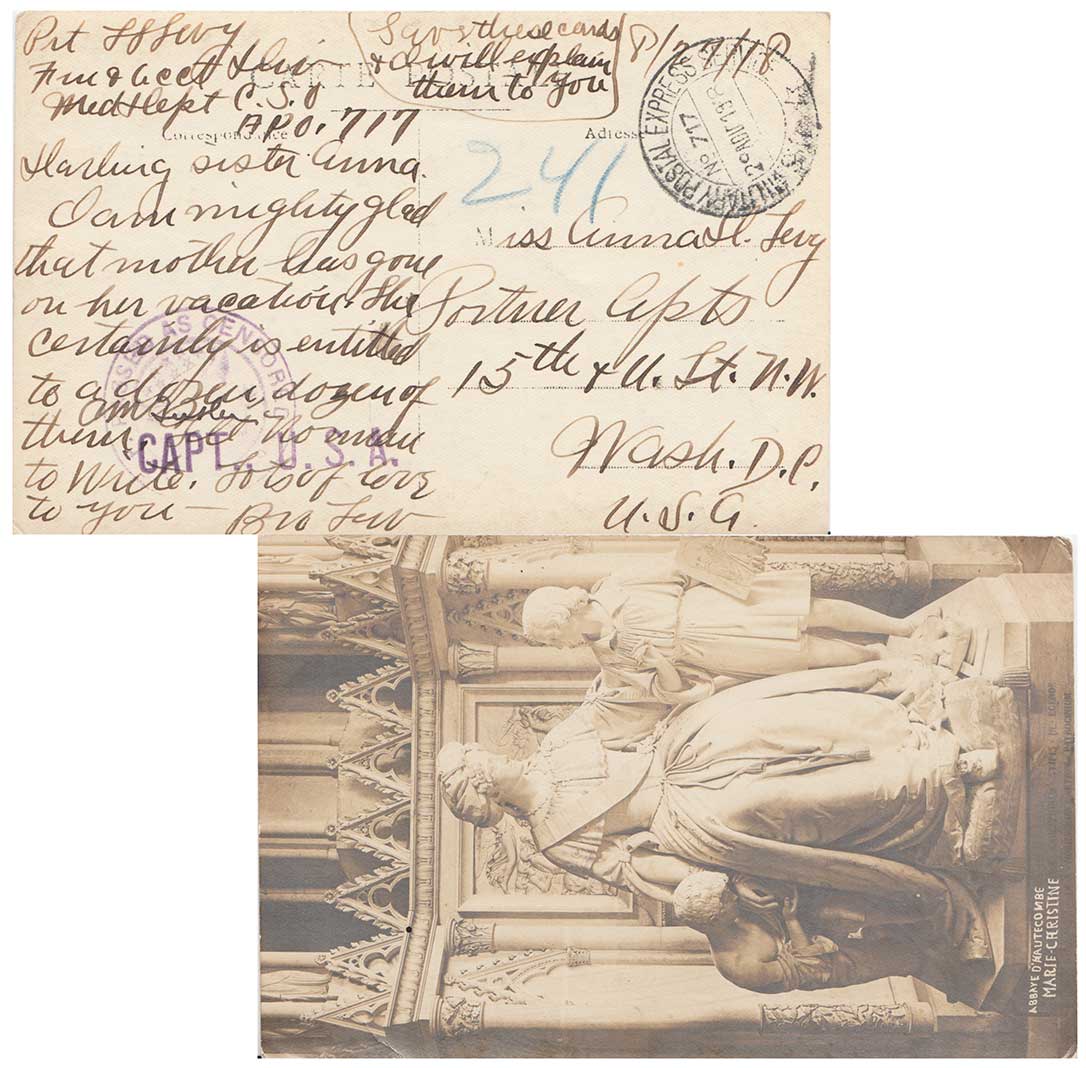 Pvt
Levy
Save these cards
& I will explain
them to you
8/27/18
Fin & Acct Div
Med Dept C.S.O
A.P.O. 717
CARTE POSTALE
Correspondance
Adresse
241
MILITARY POSTAL EXPRESS
No 717
1918
Darling sister Anna.
I am mighty glad
that mother has gone
on her vacation. She
certainly is entitled
to a dozen, dozen of
them. Tell Norman
to write. Lots of love
to you — Bro Lew
PASSED AS CENSORED
CAPT., U. S. A.
Miss Anna H. Levy
Portner Apts
15th & U. St. N.W.
Wash. D.C.
U.S.A.
ABBAYE D'HAUTECOMBE
MARIE-CHRISTINE